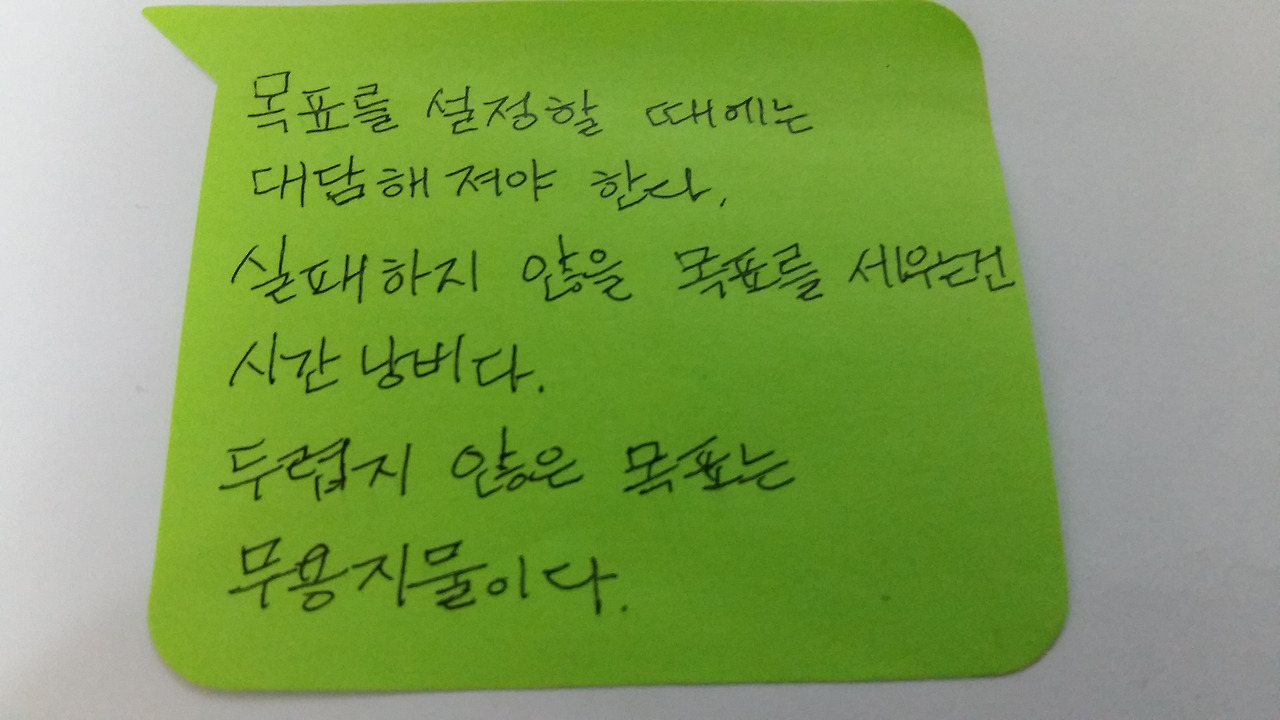 목표를 설정할 때에는
대담해져야 한다.
실패하지 않을 목표를 세우는건
시간낭비다.
두렵지 않은 목표는
무용지물이다.